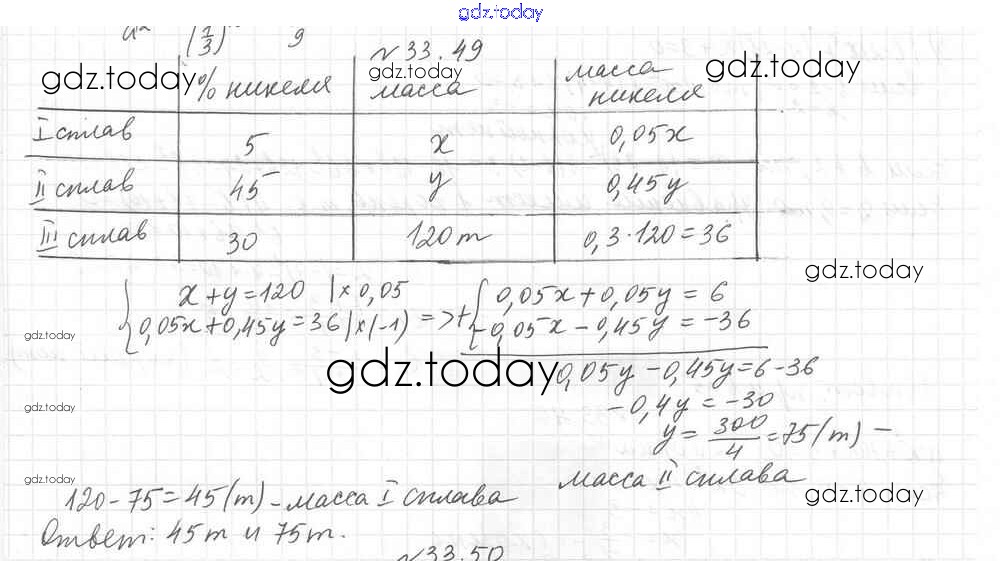 gdz.today
(1/3) 9
№33.49
gdz.today gdz.today gdz.today
% никеля масса масса никеля
I сплав 5 x 0,05x
II сплав 45 y 0,45y
III сплав 30 120т 0,3·120=36
gdz.today
{ x+y=120 |×0,05
0,05x+0,45y=36 |×(-1) => + { 0,05x+0,05y=6
-0,05x-0,45y=-36
gdz.today
gdz.today
0,05y-0,45y=6-36
gdz.today
-0,4y=-30
y=300/4=75(т) –
масса II сплава
gdz.today
gdz.today
120-75=45(т) - масса I сплава
Ответ: 45т и 75т.
№33.50